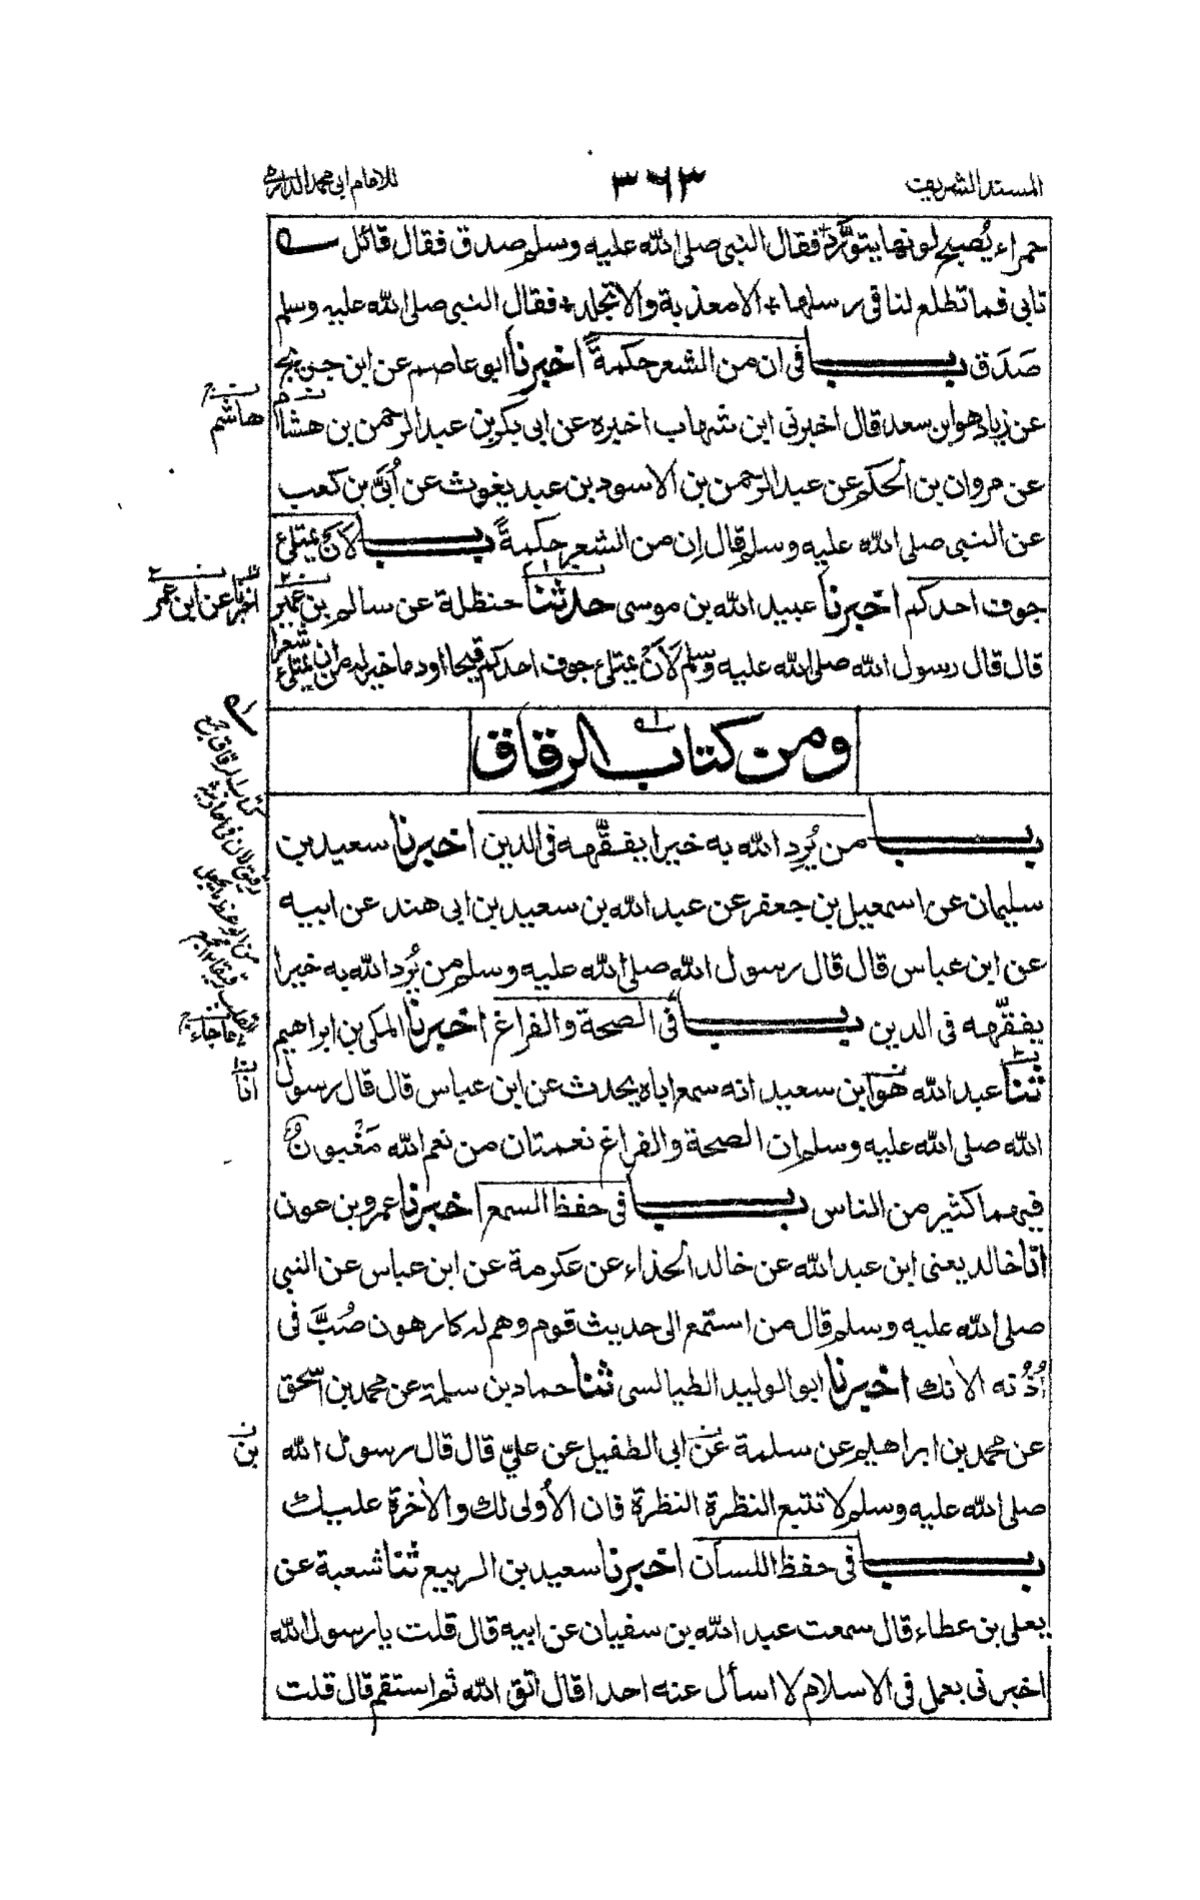 المسند الشريف ٣٦٣ للامام ابى محمد الدارمى
حمراء يُصبح لونها يتورَّد فقال النبى صلى الله عليه وسلم صدق فقال قائل
تابى فما تطلع لنا فى رسلها + الا معذبة والا تجلد + فقال النبى صلى الله عليه وسلم
صَدَق باب فى ان من الشعر حكمةً اخبرنا ابو عاصم عن ابن جريج
عن زياد هو ابن سعد قال اخبرنى ابن شهاب اخبره عن ابى بكر بن عبد الرحمن بن هشام
هاشم
عن مروان بن الحكم عن عبد الرحمن بن الاسود بن عبد يغوث عن اُبَىّ بن كعب
عن النبى صلى الله عليه وسلم قال ان من الشعر حكمةً باب لاَن يمتلئ
جوف احدكم اخبرنا عبيد الله بن موسى حدثنا حنظلة عن سالم بن عمر
اخبرنا عن ابن عمر
قال قال رسول الله صلى الله عليه وسلم لاَنْ يمتلئ جوف احدكم قيحا او دما خير له من ان يمتلئ شعرا
ومن كتاب الرقاق
باب من يُرِد الله به خيرا يفقّهه فى الدين اخبرنا سعيد بن
سليمان عن اسمعيل بن جعفر عن عبد الله بن سعيد بن ابى هند عن ابيه
عن ابن عباس قال قال رسول الله صلى الله عليه وسلم من يُرِد الله به خيرا
يفقّهه فى الدين باب فى الصحة والفراغ اخبرنا المكى بن ابراهيم
ثنا عبد الله هو ابن سعيد انه سمع اباه يحدث عن ابن عباس قال قال رسول
انا
الله صلى الله عليه وسلم ان الصحة والفراغ نعمتان من نعم الله مَغْبونٌ
فيهما كثير من الناس باب فى حفظ السمع اخبرنا عمرو بن عون
انا خالد يعنى ابن عبد الله عن خالد الحذاء عن عكرمة عن ابن عباس عن النبى
صلى الله عليه وسلم قال من استمع الى حديث قوم وهم له كارهون صُبَّ فى
اُذُنه الاٰنك اخبرنا ابو الوليد الطيالسى ثنا حماد بن سلمة عن محمد بن اسحق
عن محمد بن ابراهيم عن سلمة عن ابى الطفيل عن علىّ قال قال رسول الله
بن
صلى الله عليه وسلم لا تتبع النظرة النظرة فان الاُولى لك والاٰخرة عليك
باب فى حفظ اللسان اخبرنا سعيد بن الربيع ثنا شعبة عن
يعلى بن عطاء قال سمعت عبد الله بن سفيان عن ابيه قال قلت يا رسول الله
اخبرنى بعمل فى الاسلام لا اسأل عنه احدا قال اتق الله ثم استقم قال قلت